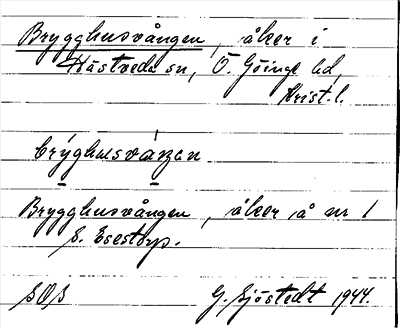 Brygghusvången, åker i
Hästveda sn, Ö. Göinge hd,
Krist. l.
brýghusvánen
Brygghusvången, åker å nr 1
S. Esestorp.
SOS G. Sjöstedt 1944.